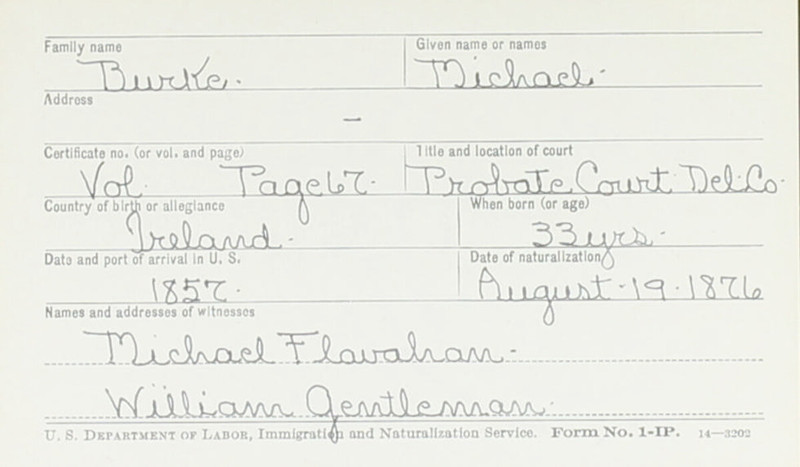 Family name Given name or names
Burke. Michael.
Address
—
Certificate no. (or vol. and page) Title and location of court
Vol. Page 67. Probate Court Del. Co.
Country of birth or allegiance When born (or age)
Ireland. 33 yrs.
Date and port of arrival in U. S. Date of naturalization
1857. August. 19. 1876
Names and addresses of witnesses
Michael Flavahan.
William Gentleman.
U. S. DEPARTMENT OF LABOR, Immigration and Naturalization Service. Form No. 1-IP. 14—3202